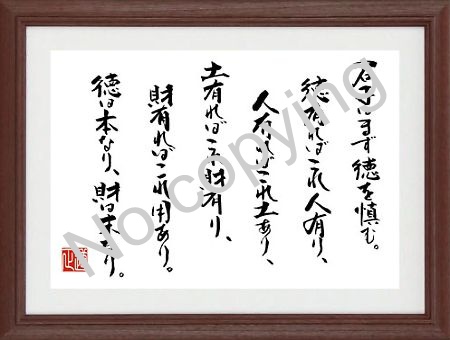 君子はまず徳を慎む。
徳有ればこれ人有り、
人有ればこれ土あり、
土有ればこれ財有り、
財有ればこれ用あり。
徳は本なり、財は末なり。
No copying